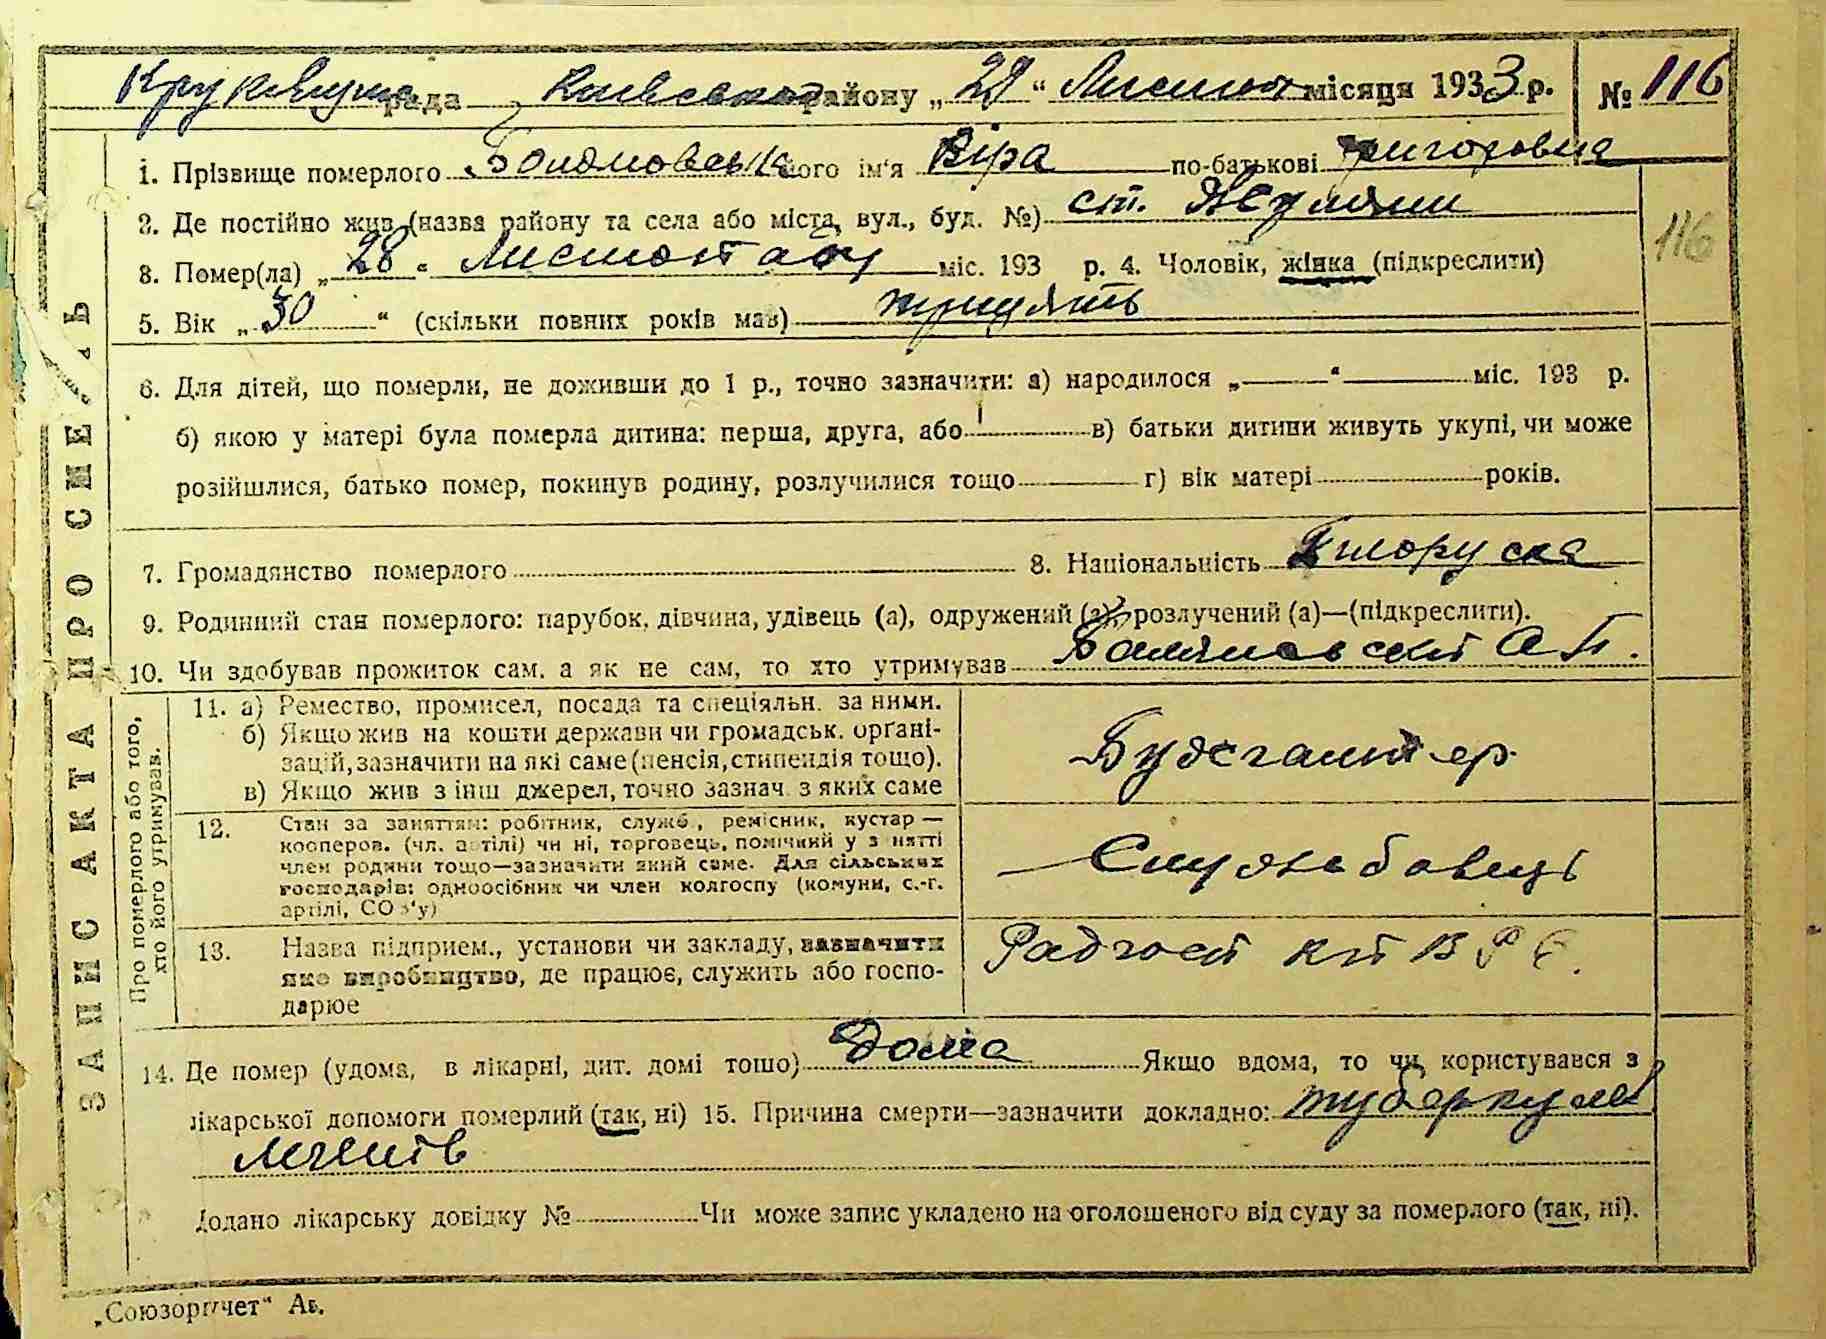 рада Київської району „29“ місяця 1933 р. № 116
1. Прізвище померлого його ім'я Віра по-батькові Григоровна
2. Де постійно жив (назва району та села або міста, вул., буд. №) ст. Жуляни
116
3. Помер(ла) „28“ Листопаду міс. 193 р. 4. Чоловік, жінка (підкреслити)
5. Вік „30“ (скільки повних років мав) трицять
6. Для дітей, що померли, не доживши до 1 р., точно зазначити: а) народилося „ “ міс. 193 р.
б) якою у матері була померла дитина: перша, друга, або в) батьки дитини живуть укупі, чи може
розійшлися, батько помер, покинув родину, розлучилися тощо г) вік матері років.
7. Громадянство померлого 8. Національність Білоруска
9. Родинний стан померлого: парубок, дівчина, удівець (а), одружений (а), розлучений (а)—(підкреслити).
10. Чи здобував прожиток сам, а як не сам, то хто утримував А П.
ЗАПИС АКТА ПРО СМЕРТЬ
Про померлого або того, хто його утримував.
11. а) Ремество, промисел, посада та спеціяльн. за ними.
б) Якщо жив на кошти держави чи громадськ. органі-
зацій, зазначити на які саме (пенсія, стипендія тощо).
в) Якщо жив з інш джерел, точно зазнач. з яких саме
Бухгалтер
12. Стан за заняттям: робітник, служб., ремісник, кустар—
кооперов. (чл. артілі) чи ні, торговець, помічний у занятті
член родини тощо—зазначити який саме. Для сільських
господарів: одноосібник чи член колгоспу (комуни, с.-г.
артілі, СОЗ'у)
Службовець
13. Назва підприєм., установи чи закладу, зазначити
яке виробництво, де працює, служить або госпо-
дарює
Радгосп
14. Де помер (удома, в лікарні, дит. домі тощо) дома Якщо вдома, то чи користувався з
лікарської допомоги померлий (так, ні) 15. Причина смерти—зазначити докладно: туберкульоз
легенів
Додано лікарську довідку № Чи може запис укладено на оголошеного від суду за померлого (так, ні).
„Союзоргучет“